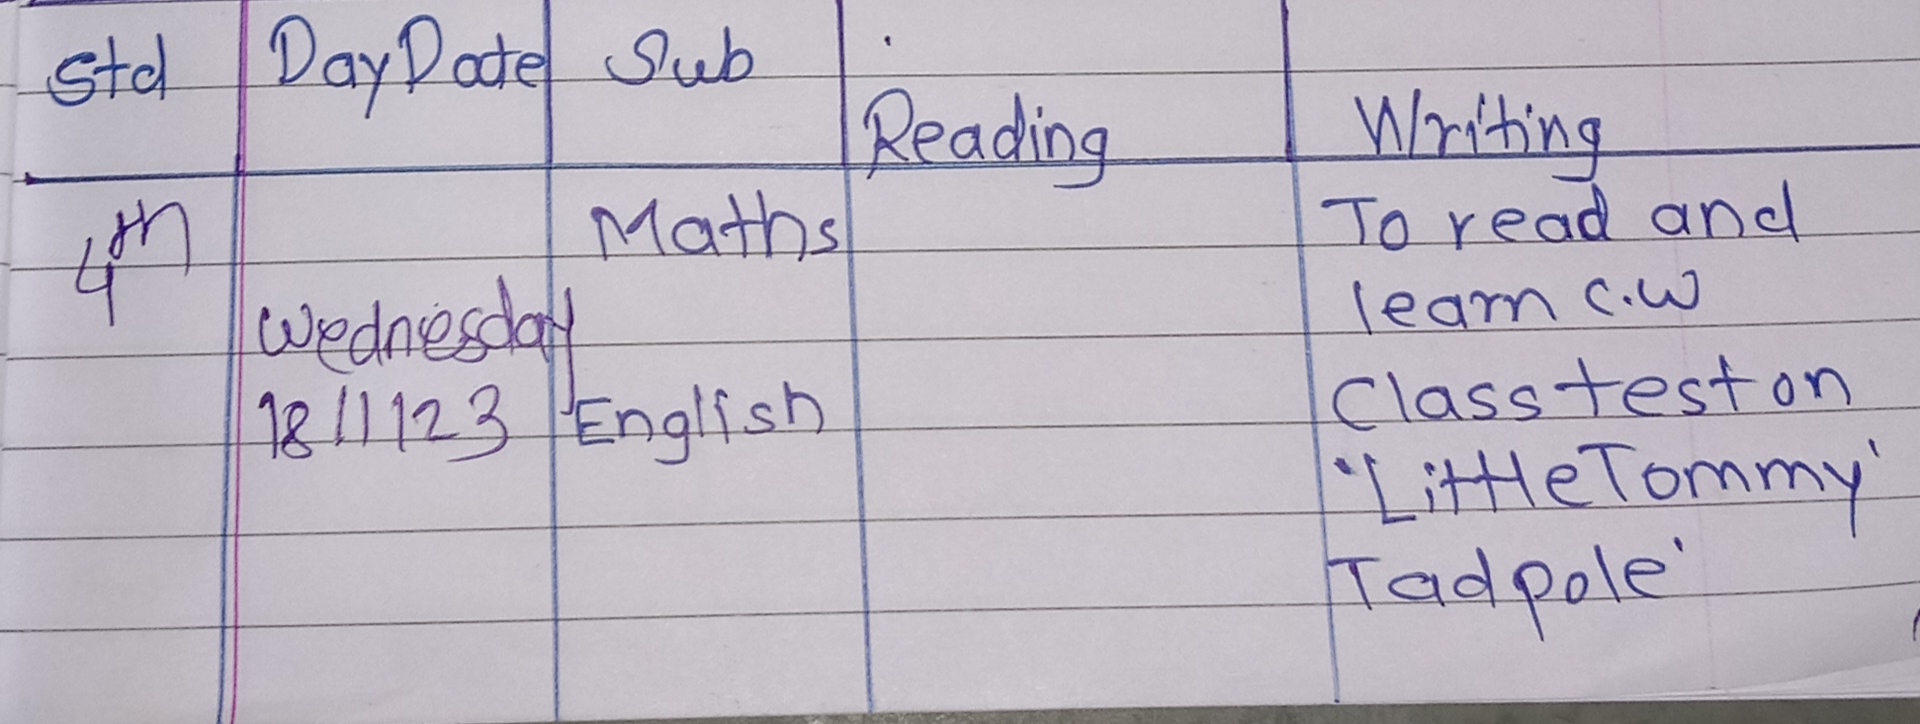 Std Day Date Sub
Reading Writing
4th Maths To read and
Wednesday learn c.w
18/1/23 English Class test on
'Little Tommy'
Tadpole'